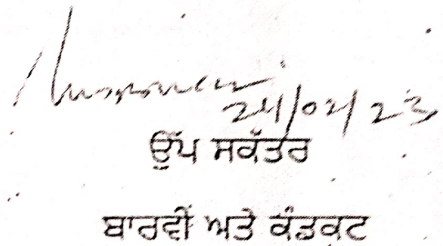 24/04/23
ਉੱਪ ਸਕੱਤਰ
ਬਾਰਵੀਂ ਅਤੇ ਕੰਡਕਟ